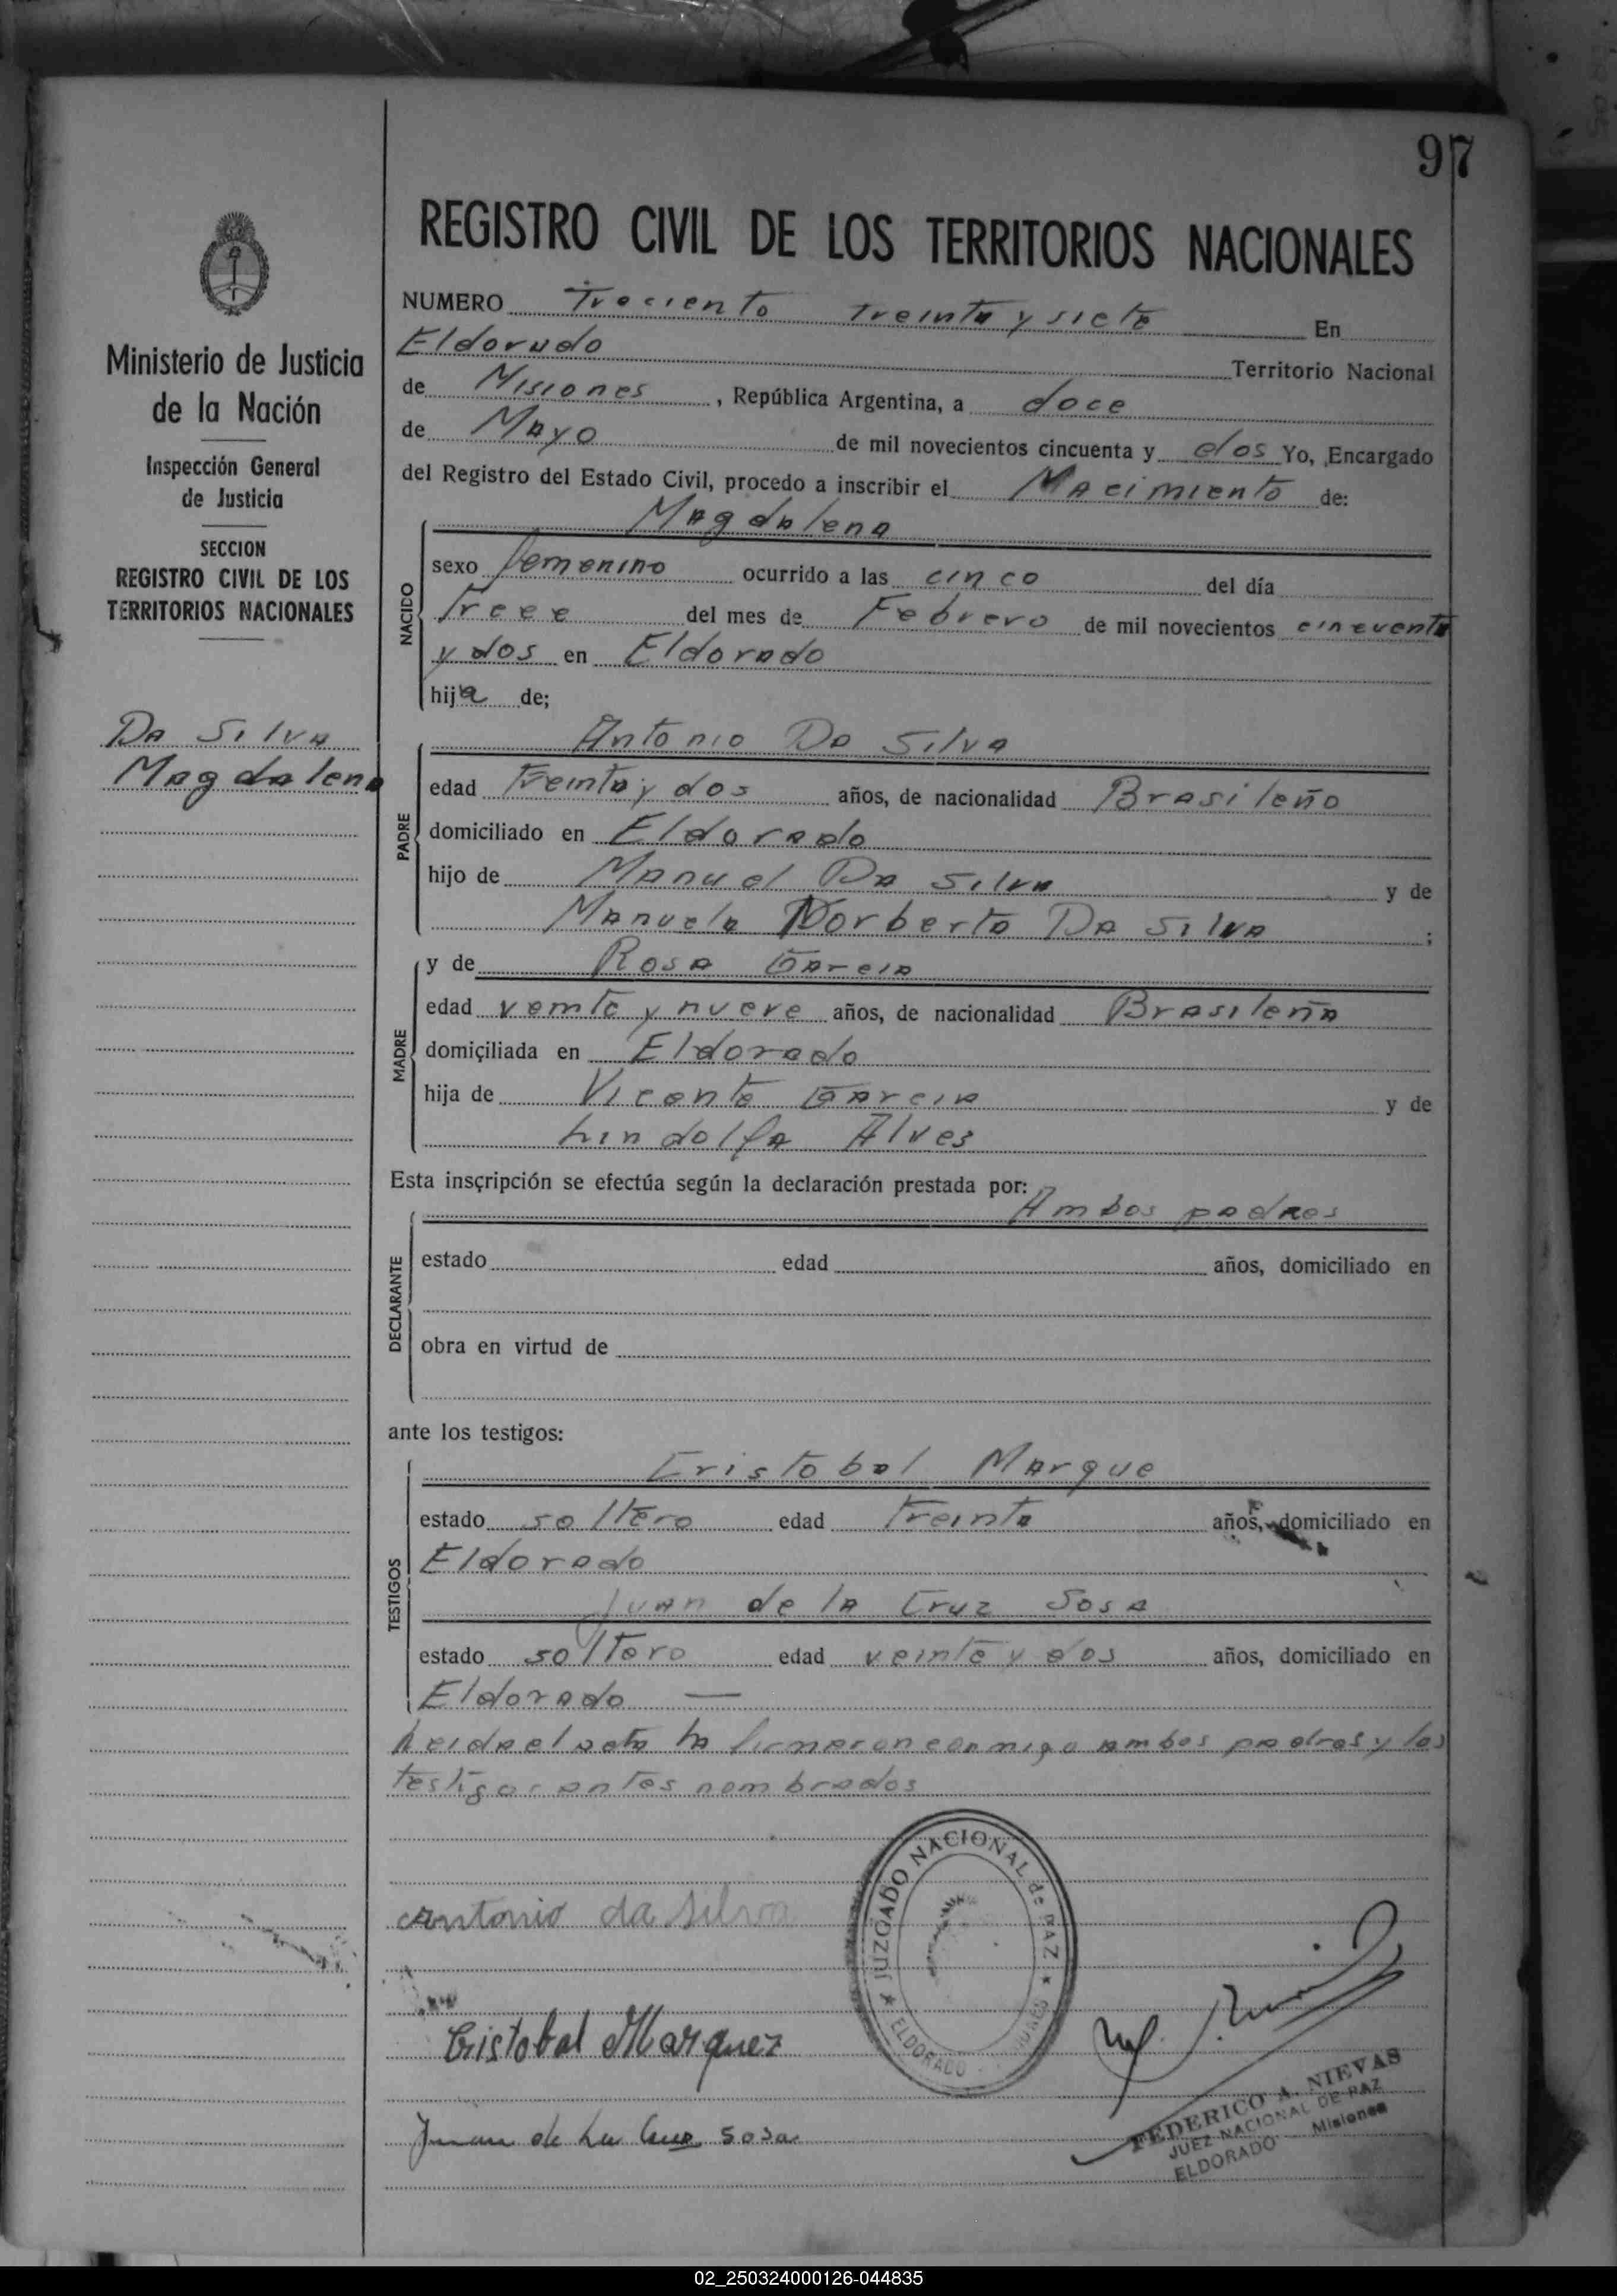 97
REGISTRO CIVIL DE LOS TERRITORIOS NACIONALES
Ministerio de Justicia
de la Nación
Inspección General
de Justicia
SECCION
REGISTRO CIVIL DE LOS
TERRITORIOS NACIONALES
Da Silva
Magdalena
NUMERO Treciento treinta y siete En
Eldorado Territorio Nacional
de Misiones, República Argentina, a doce
de Mayo de mil novecientos cincuenta y dos Yo, Encargado
del Registro del Estado Civil, procedo a inscribir el Nacimiento de:
Magdalena
NACIDO
sexo femenino ocurrido a las cinco del día
Trece del mes de Febrero de mil novecientos cincuenta
y dos en Eldorado
hija de;
Antonio Da Silva
PADRE
edad Treinta y dos años, de nacionalidad Brasileño
domiciliado en Eldorado
hijo de Manuel Da Silva y de
Manuela Norberta Da Silva ;
y de Rosa Garcia
MADRE
edad veinte y nueve años, de nacionalidad Brasileña
domiciliada en Eldorado
hija de Vicente Garcia y de
Lindolfa Alves
Esta inscripción se efectúa según la declaración prestada por:
Ambos padres
DECLARANTE
estado edad años, domiciliado en
obra en virtud de
ante los testigos:
Cristobal Marque
TESTIGOS
estado soltero edad Treinta años, domiciliado en
Eldorado
Juan de la Cruz Sosa
estado soltero edad veinte y dos años, domiciliado en
Eldorado —
Leida el acta la firmaron conmigo ambos padres y los
testigos antes nombrados
Antonio da silva
JUZGADO NACIONAL de PAZ
ELDORADO
Cristobal Marquez
Juan de La Cruz Sosa
FEDERICO A. NIEVAS
JUEZ NACIONAL DE PAZ
ELDORADO - Misiones
02_250324000126-044835